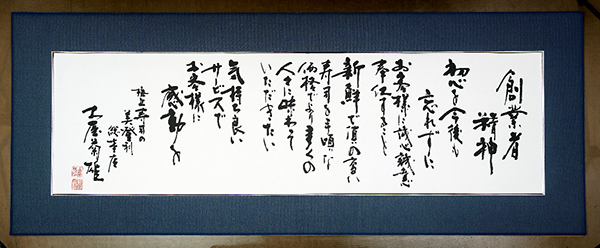 創業者
精神
初心を今後も
忘れずに
お客様に誠心誠意
奉仕すること
新鮮で質の高い
寿司を手頃な
価格でより多くの
人々に味わって
いただきたい
気持ち良い
サービスで
お客様に
感動を
極上寿司の
美登利
総本店